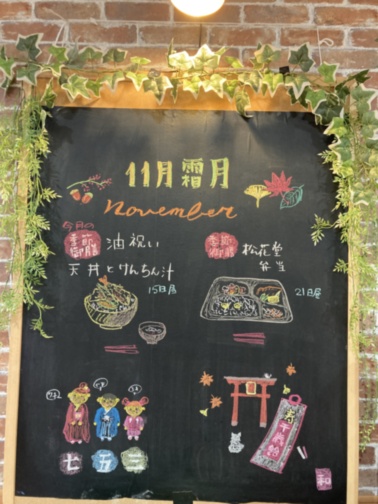 11月 霜月
November
今月の
季節
御膳
油祝い
天丼とけんちん汁
15日昼
季節
御膳
松花堂
弁当
21日昼
七 五 三
千歳飴
和